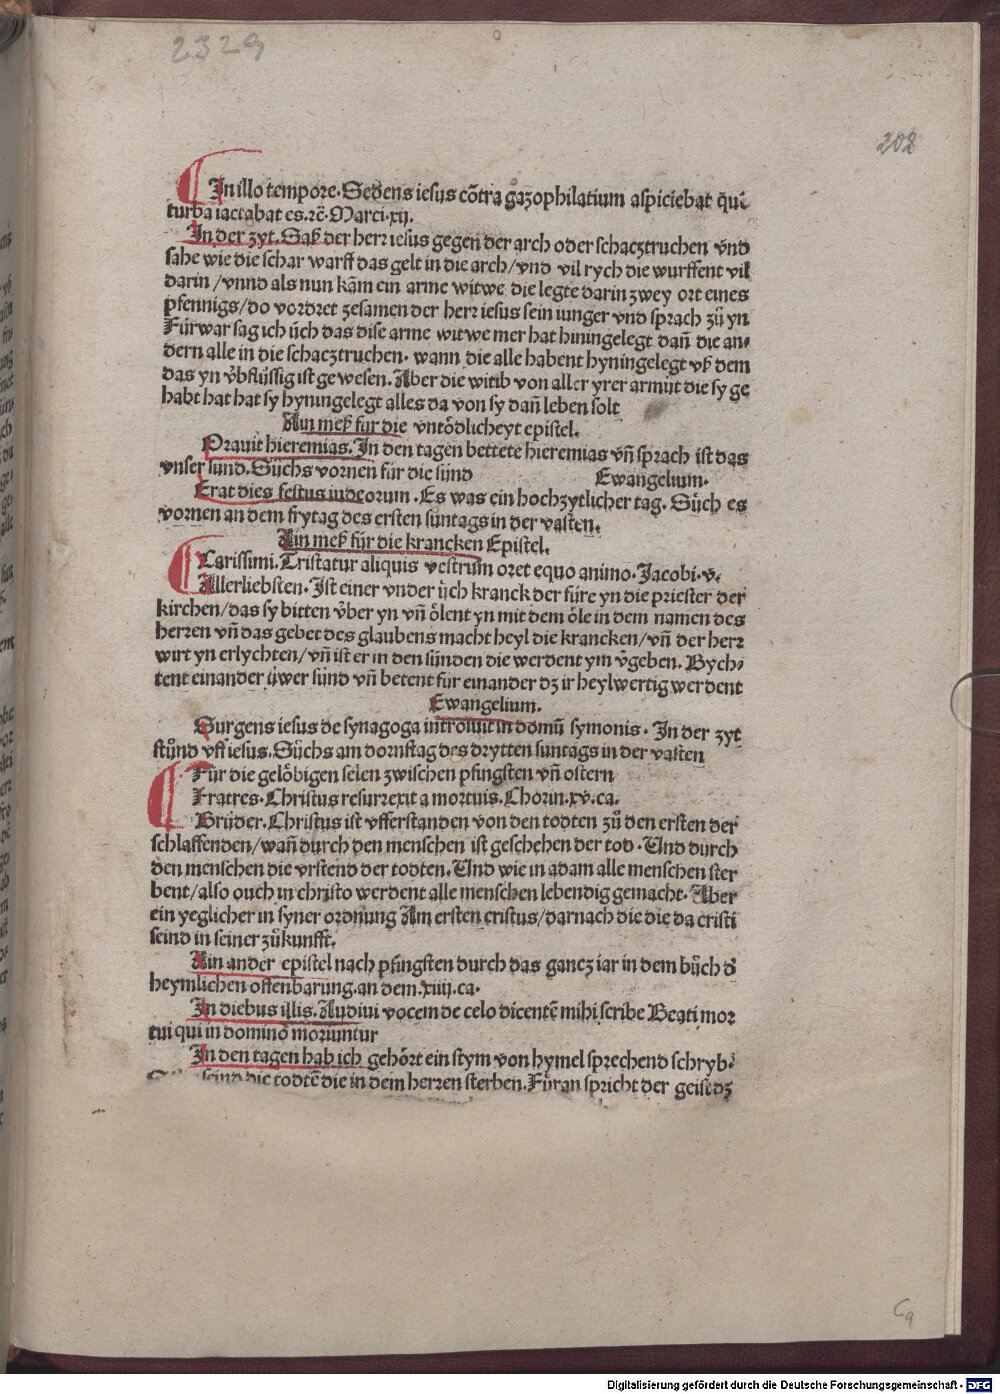 2329
202
In illo tempore. Sedens iesus cōtra gazophilatium aspiciebat quē
turba iactabat es. rc̄. Marci. xij.
In der zyt. Saß der herr iesus gegen der arch oder schacztruchen vnd
sahe wie die schar warff das gelt in die arch/vnd vil rych die wurffent vil
darin/vnnd als nun kam ein arme witwe die legte darin zwey ort eines
pfennigs/do vordret zesamen der herr iesus sein iunger vnd sprach zů yn
Fürwar sag ich üch das dise arme witwe mer hat hiningelegt dañ die an-
dern alle in die schacztruchen. wann die alle habent hyningelegt vß dem
das yn v̄bflüssig ist gewesen. Aber die witib von aller yrer armut die sy ge
habt hat hat sy hyningelegt alles da von sy dañ leben solt
Ain meß für die vntödlicheyt epistel.
Orauit hieremias. In den tagen bettete hieremias vñ sprach ist das
vnser sund. Sůchs vornen für die sünd Ewangelium.
Erat dies festus iudeorum. Es was ein hochzytlicher tag. Sůch es
vornen an dem frytag des ersten suntags in der vasten.
Ain meß für die krancken Epistel.
Carissimi. Tristatur aliquis vestrum oret equo animo. Jacobi. v.
Allerliebsten. Ist einer vnder üch kranck der füre yn die priester der
kirchen/das sy bitten v̈ber yn vñ ölent yn mit dem öle in dem namen des
herren vñ das gebet des glaubens macht heyl die krancken/vñ der herr
wirt yn erlychten/vñ ist er in den sünden die werdent ym v̄geben. Bych-
tent einander üwer sünd vñ betent für einander dz ir heylwertig werdent
Ewangelium.
Surgens iesus de synagoga introiuit in domū symonis. In der zyt
stůnd vff iesus. Sůchs am dornstag des drytten suntags in der vasten
Für die gelöbigen selen zwischen pfingsten vñ ostern
Fratres. Christus resurrexit a mortuis. Chorin. xv. ca.
Brüder. Christus ist vfferstanden von den todten zů den ersten der
schlaffenden/wañ durch den menschen ist geschehen der tod. Und durch
den menschen die vrstend der todten. Und wie in adam alle menschen ster
bent/also ouch in christo werdent alle menschen lebendig gemacht. Aber
ein yeglicher in syner ordnung Am ersten cristus/darnach die die da cristi
seind in seiner zůkunfft.
Ain ander epistel nach pfingsten durch das gancz iar in dem bůch d̄
heymlichen offenbarung. an dem. xiiij. ca.
In diebus illis. Audiui vocem de celo dicentē mihi scribe Beati mor
tui qui in domino moriuntur
In den tagen hab ich gehört ein stym von hymel sprechend schryb.
seind die todtē die in dem herren sterben. Füran spricht der geist dz
Digitalisierung gefördert durch die Deutsche Forschungsgemeinschaft - DFG